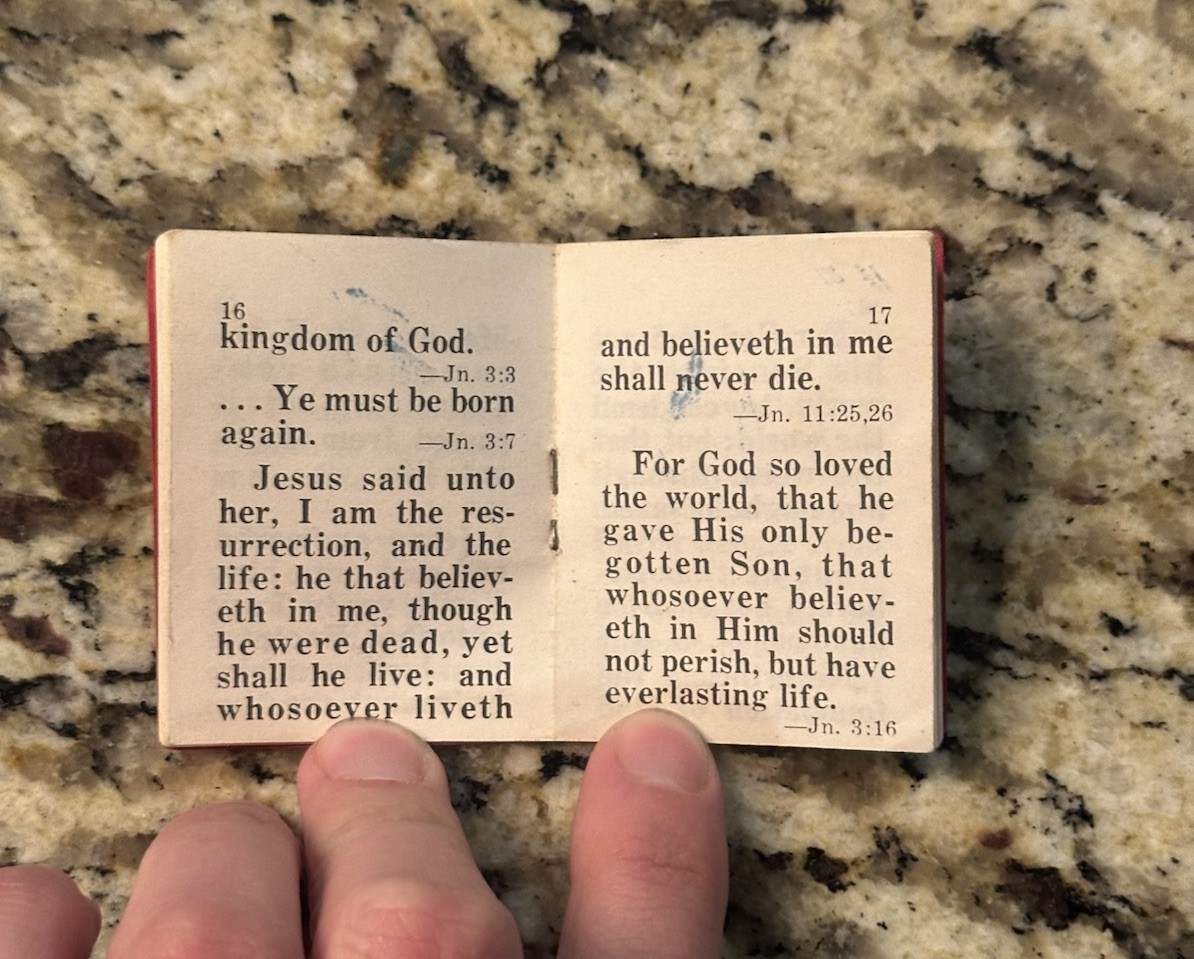 16
kingdom of God.
—Jn. 3:3
... Ye must be born
again. —Jn. 3:7
Jesus said unto
her, I am the res-
urrection, and the
life: he that believ-
eth in me, though
he were dead, yet
shall he live: and
whosoever liveth
17
and believeth in me
shall never die.
—Jn. 11:25,26
For God so loved
the world, that he
gave His only be-
gotten Son, that
whosoever believ-
eth in Him should
not perish, but have
everlasting life.
—Jn. 3:16